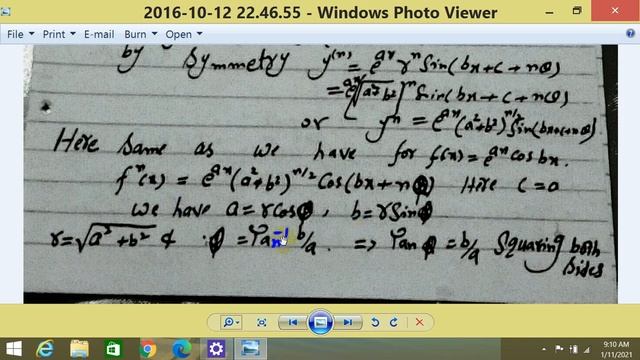 2016-10-12 22.46.55 - Windows Photo Viewer
File Print E-mail Burn Open
by Symmetry y⁽ⁿ⁾ = e^ax rⁿ Sin(bx + c + nθ)
= e^ax [√a²+b²]ⁿ Sin(bx + c + nθ)
or yⁿ = e^ax (a²+b²)^n/2 Sin(bx+c+nθ)
Here Same as we have for f(x) = e^ax cos bx.
fⁿ(x) = e^ax (a²+b²)^n/2 Cos(bx + nφ) Here C = 0
we have a = r cosφ, b = r Sinφ
r = √a²+b² & φ = Tan⁻¹ b/a. => Tan φ = b/a Squaring both Sides
9:10 AM
1/11/2021